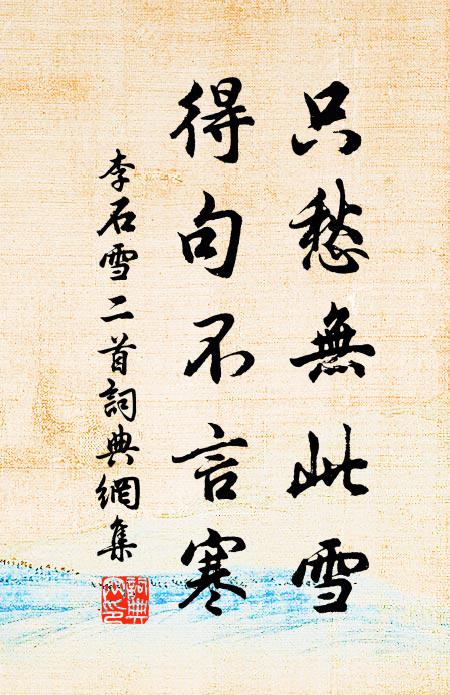 只愁無此雪
得句不言寒
李石雪二首詞典網集